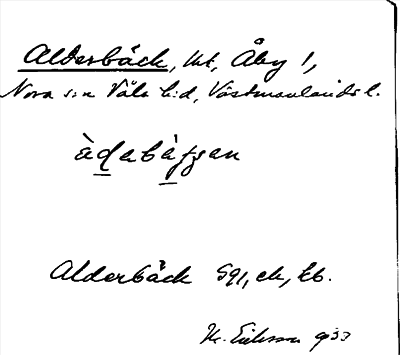 Alderbäck, lht, Åby 1,
Nora s:n Våla h:d, Västmanlands l.
àdabàfʒan
Alderbäck Sq1, ek, Eb.
K. Eriksson 1933